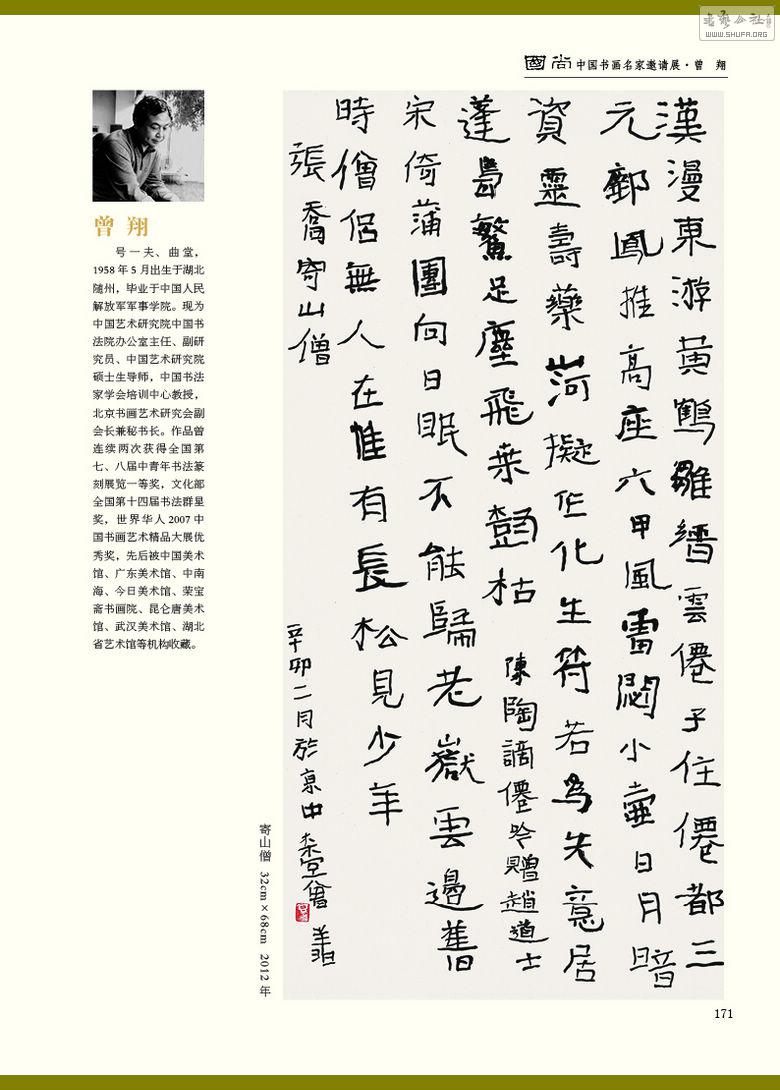 書藝公社
WWW.SHUFA.ORG
國尚 中国书画名家邀请展·曾 翔
漢漫東游黃鶴雛縉雲僊子住僊都三
元鳳推高座六甲風雷閟小壺日月暗
資靈壽藥山河擬作化生符若為失意居
蓬島鰲足塵飛桑樹枯 陳陶謫僊吟贈趙道士
宋倚蒲團向日眠不能歸老嶽雲邊舊
時僧侶無人在惟有長松見少年
張喬寄山僧
辛卯二月於京中堂曾翔
曾 翔
号一夫、曲堂，
1958 年 5 月出生于湖北
随州，毕业于中国人民
解放军军事学院。现为
中国艺术研究院中国书
法院办公室主任、副研
究员、中国艺术研究院
硕士生导师，中国书法
家学会培训中心教授，
北京书画艺术研究会副
会长兼秘书长。作品曾
连续两次获得全国第
七、八届中青年书法篆
刻展览一等奖，文化部
全国第十四届书法群星
奖，世界华人 2007 中
国书画艺术精品大展优
秀奖，先后被中国美术
馆、广东美术馆、中南
海、今日美术馆、荣宝
斋书画院、昆仑唐美术
馆、武汉美术馆、湖北
省艺术馆等机构收藏。
寄山僧 32cm×68cm 2012 年
171